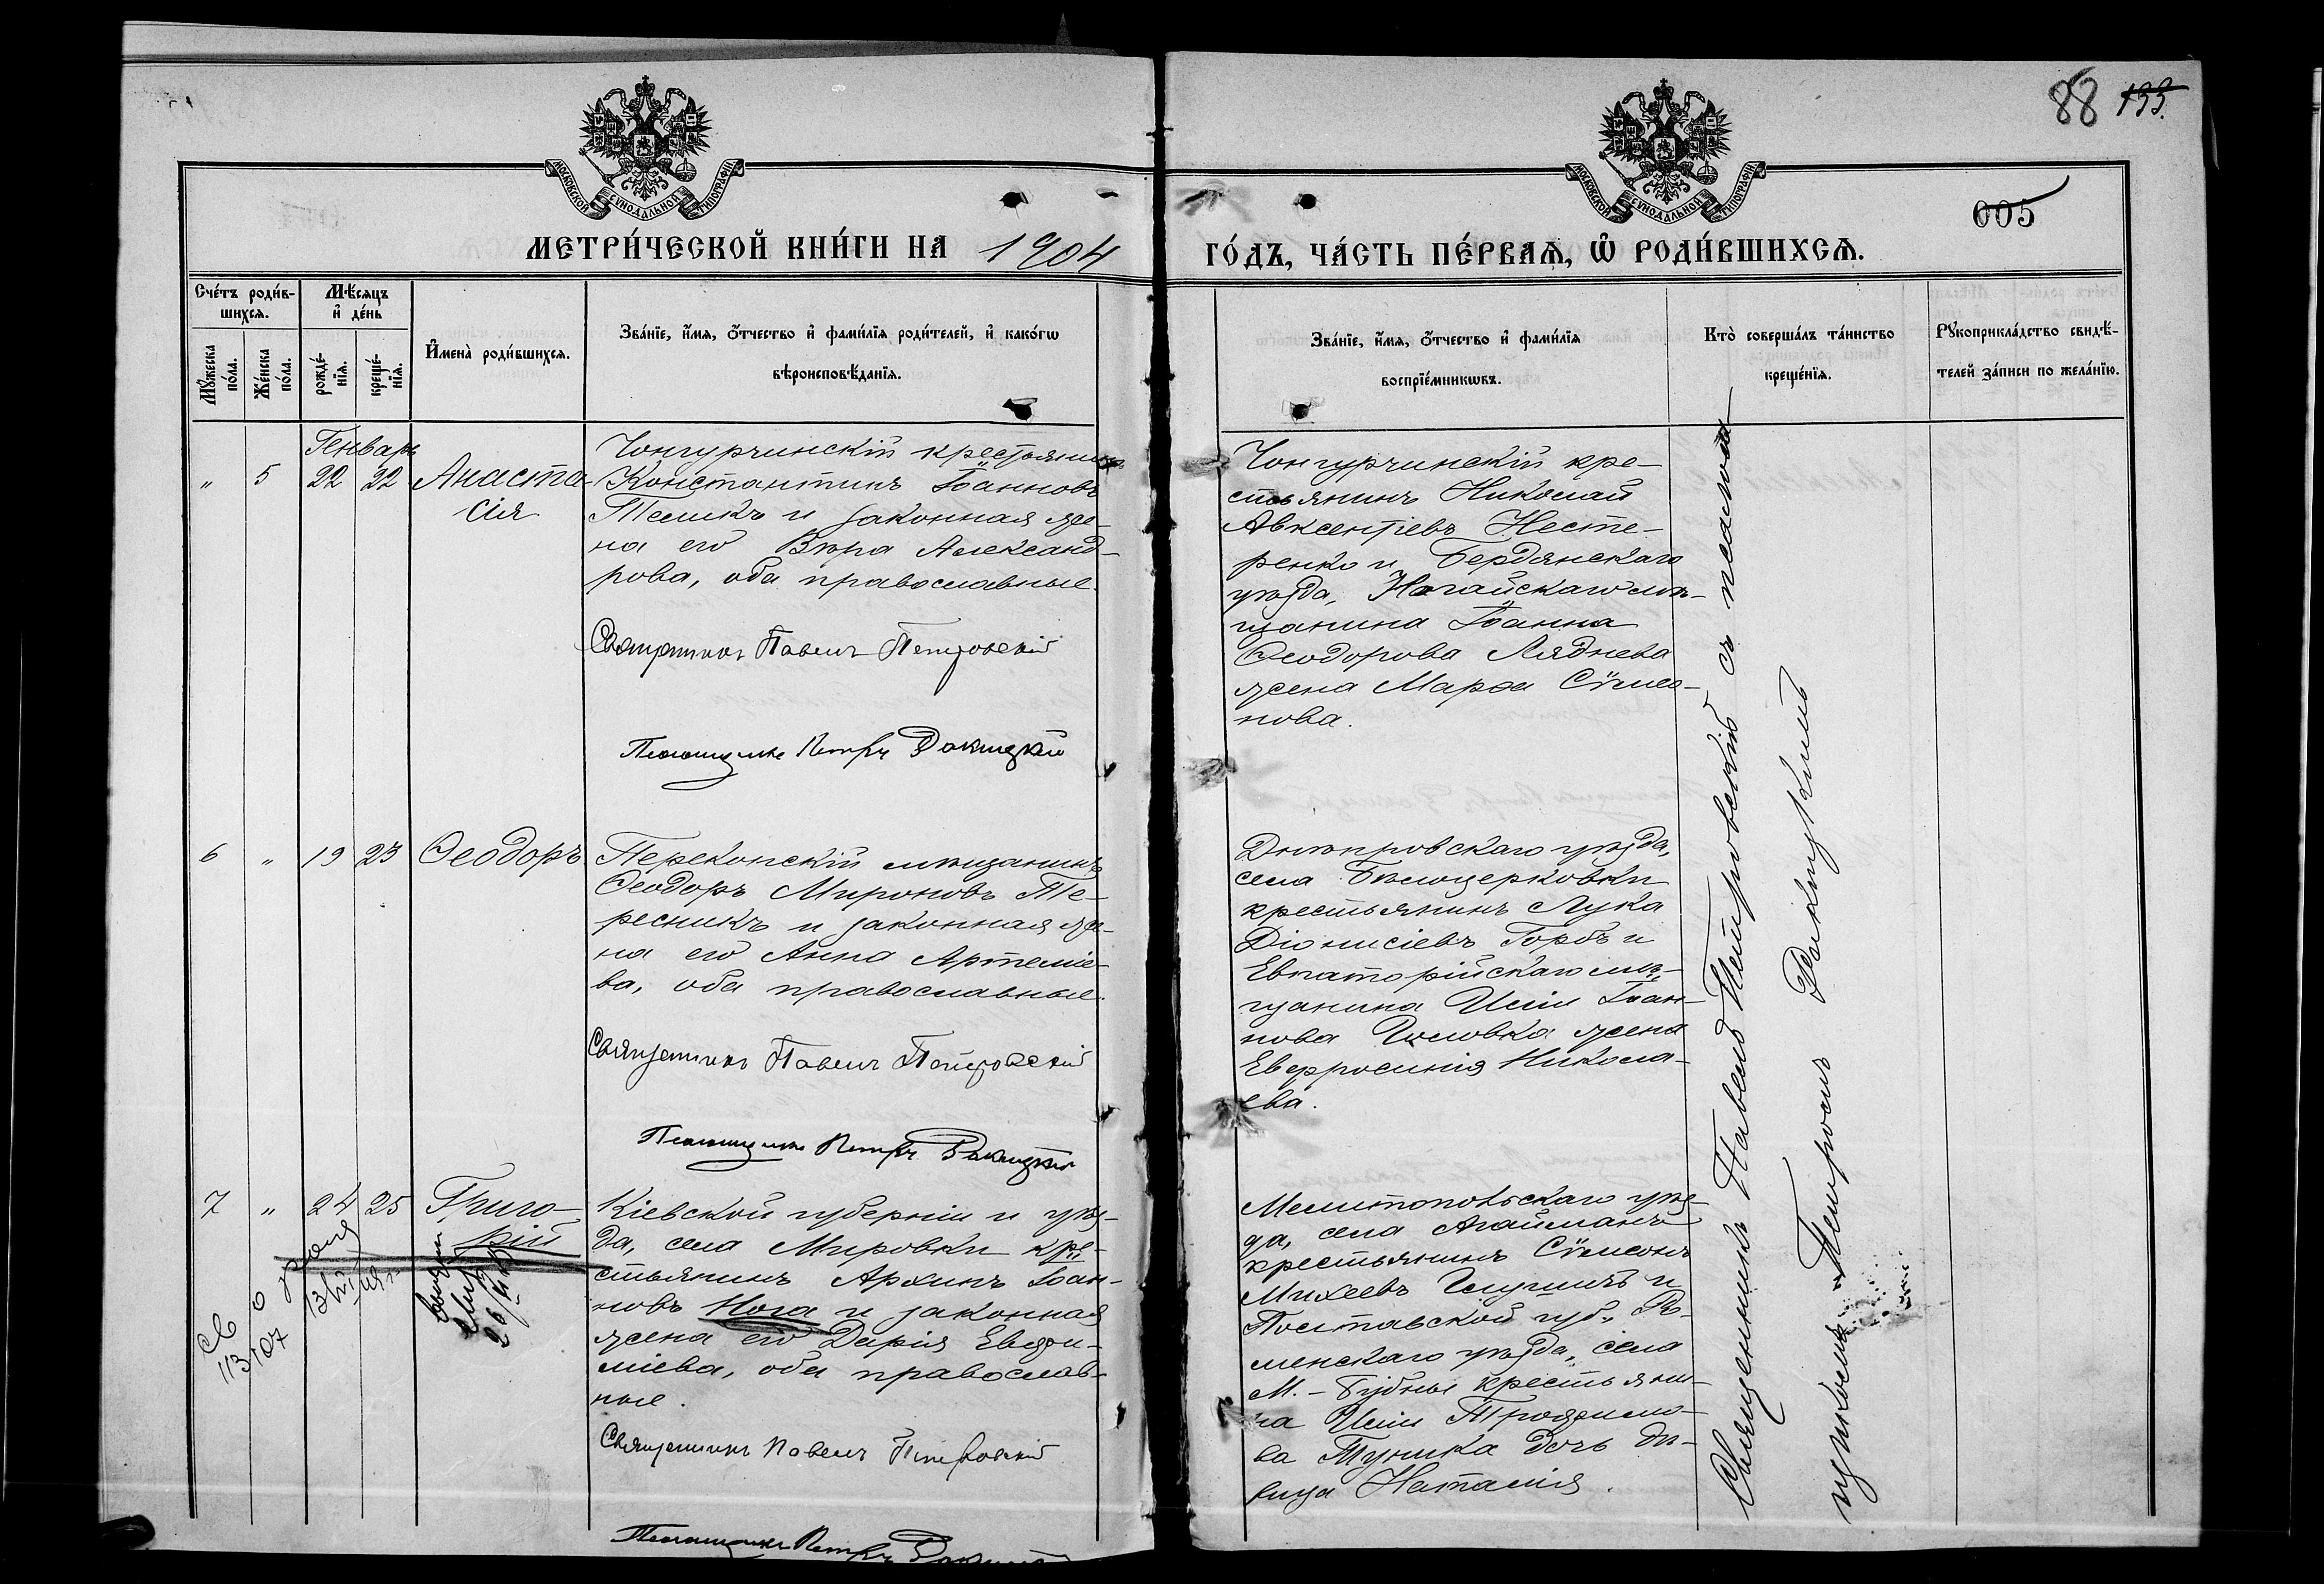 88 133.
МОСКОВСКОЙ СѴНОДАЛЬНОЙ ТИПОГРАФІИ
МОСКОВСКОЙ СѴНОДАЛЬНОЙ ТИПОГРАФІИ
005
МЕТРИ́ЧЕСКОЙ КНИ́ГИ НА 1904
ГО́ДЪ, ЧА́СТЬ ПЕ́РВАѦ, Ѡ҆ РОДИ́ВШИХСѦ.
Сче́тъ роди́в-
шихсѧ.
Мꙋ́жеска
по́ла.
Же́нска
по́ла.
Мѣ́сѧцъ
и҆ де́нь
рожде́-
нїѧ.
креще́-
нїѧ.
И҆мена̀ роди́вшихсѧ.
Зва́нїе, и҆́мѧ, ѻ҆́тчество и҆ фами́лїѧ роди́телей, и҆ како́гѡ
вѣроисповѣ́данїѧ.
Зва́нїе, и҆́мѧ, ѻ҆́тчество и҆ фами́лїѧ
воспрїе́мникѡвъ.
Кто̀ соверша́лъ та́инство
креще́нїѧ.
Рꙋкоприкла́дство свидѣ́-
телей за́писи по жела́нїю.
Генварь
" 5 22 22 Анаста-
сія
Чонгурчинскій крестьянинъ
Константинъ Іоанновъ
Теликъ и законная же-
на его Вѣра Александ-
рова, оба православные.
Священникъ Павелъ Петровскій
Псаломщикъ Петръ Ракицкій
Чонгурчинскій кре-
стьянинъ Николай
Авксентіевъ Несте-
ренко и Бердянскаго
уѣзда, Ногайскаго мѣ-
щанина Іоанна
Ѳеодорова Ляднева
жена Марѳа Сѵмео-
нова.
6 " 19 23 Ѳеодоръ
Перекопскій мѣщанинъ
Ѳеодоръ Мироновъ Те-
ресникъ и законная же-
на его Анна Артеміе-
ва, оба православные.
Священникъ Павелъ Петровскій
Псаломщикъ Петръ Ракицкій
Днѣпровскаго уѣзда,
села Бѣлоцерковки
крестьянинъ Лука
Діонисіевъ Горбъ и
Евпаторійскаго мѣ-
щанина Иліи Іоан-
нова жена
Евфросинія Никола-
ева.
7 " 24 25 Григо-
рій
Кіевской губерніи и уѣз-
да, села Мировки кре-
стьянинъ Архипъ Іоан-
новъ Нога и законная
жена его Дарія Евфи-
міева, оба православ-
ные.
Священникъ Павелъ Петровскій
Псаломщикъ Петръ Ракицкій
Мелитопольскаго уѣз-
да, села Агайманъ
крестьянинъ Сѵмеонъ
Михеевъ и
Полтавской губ., Ро-
менскаго уѣзда, села
М.-Бубны крестьяни-
на Иліи Трофимо-
ва Туника дочь дѣ-
вица Наталія.
Священникъ Павелъ Петровскій съ псалом-
щикомъ Петромъ Ракицкимъ